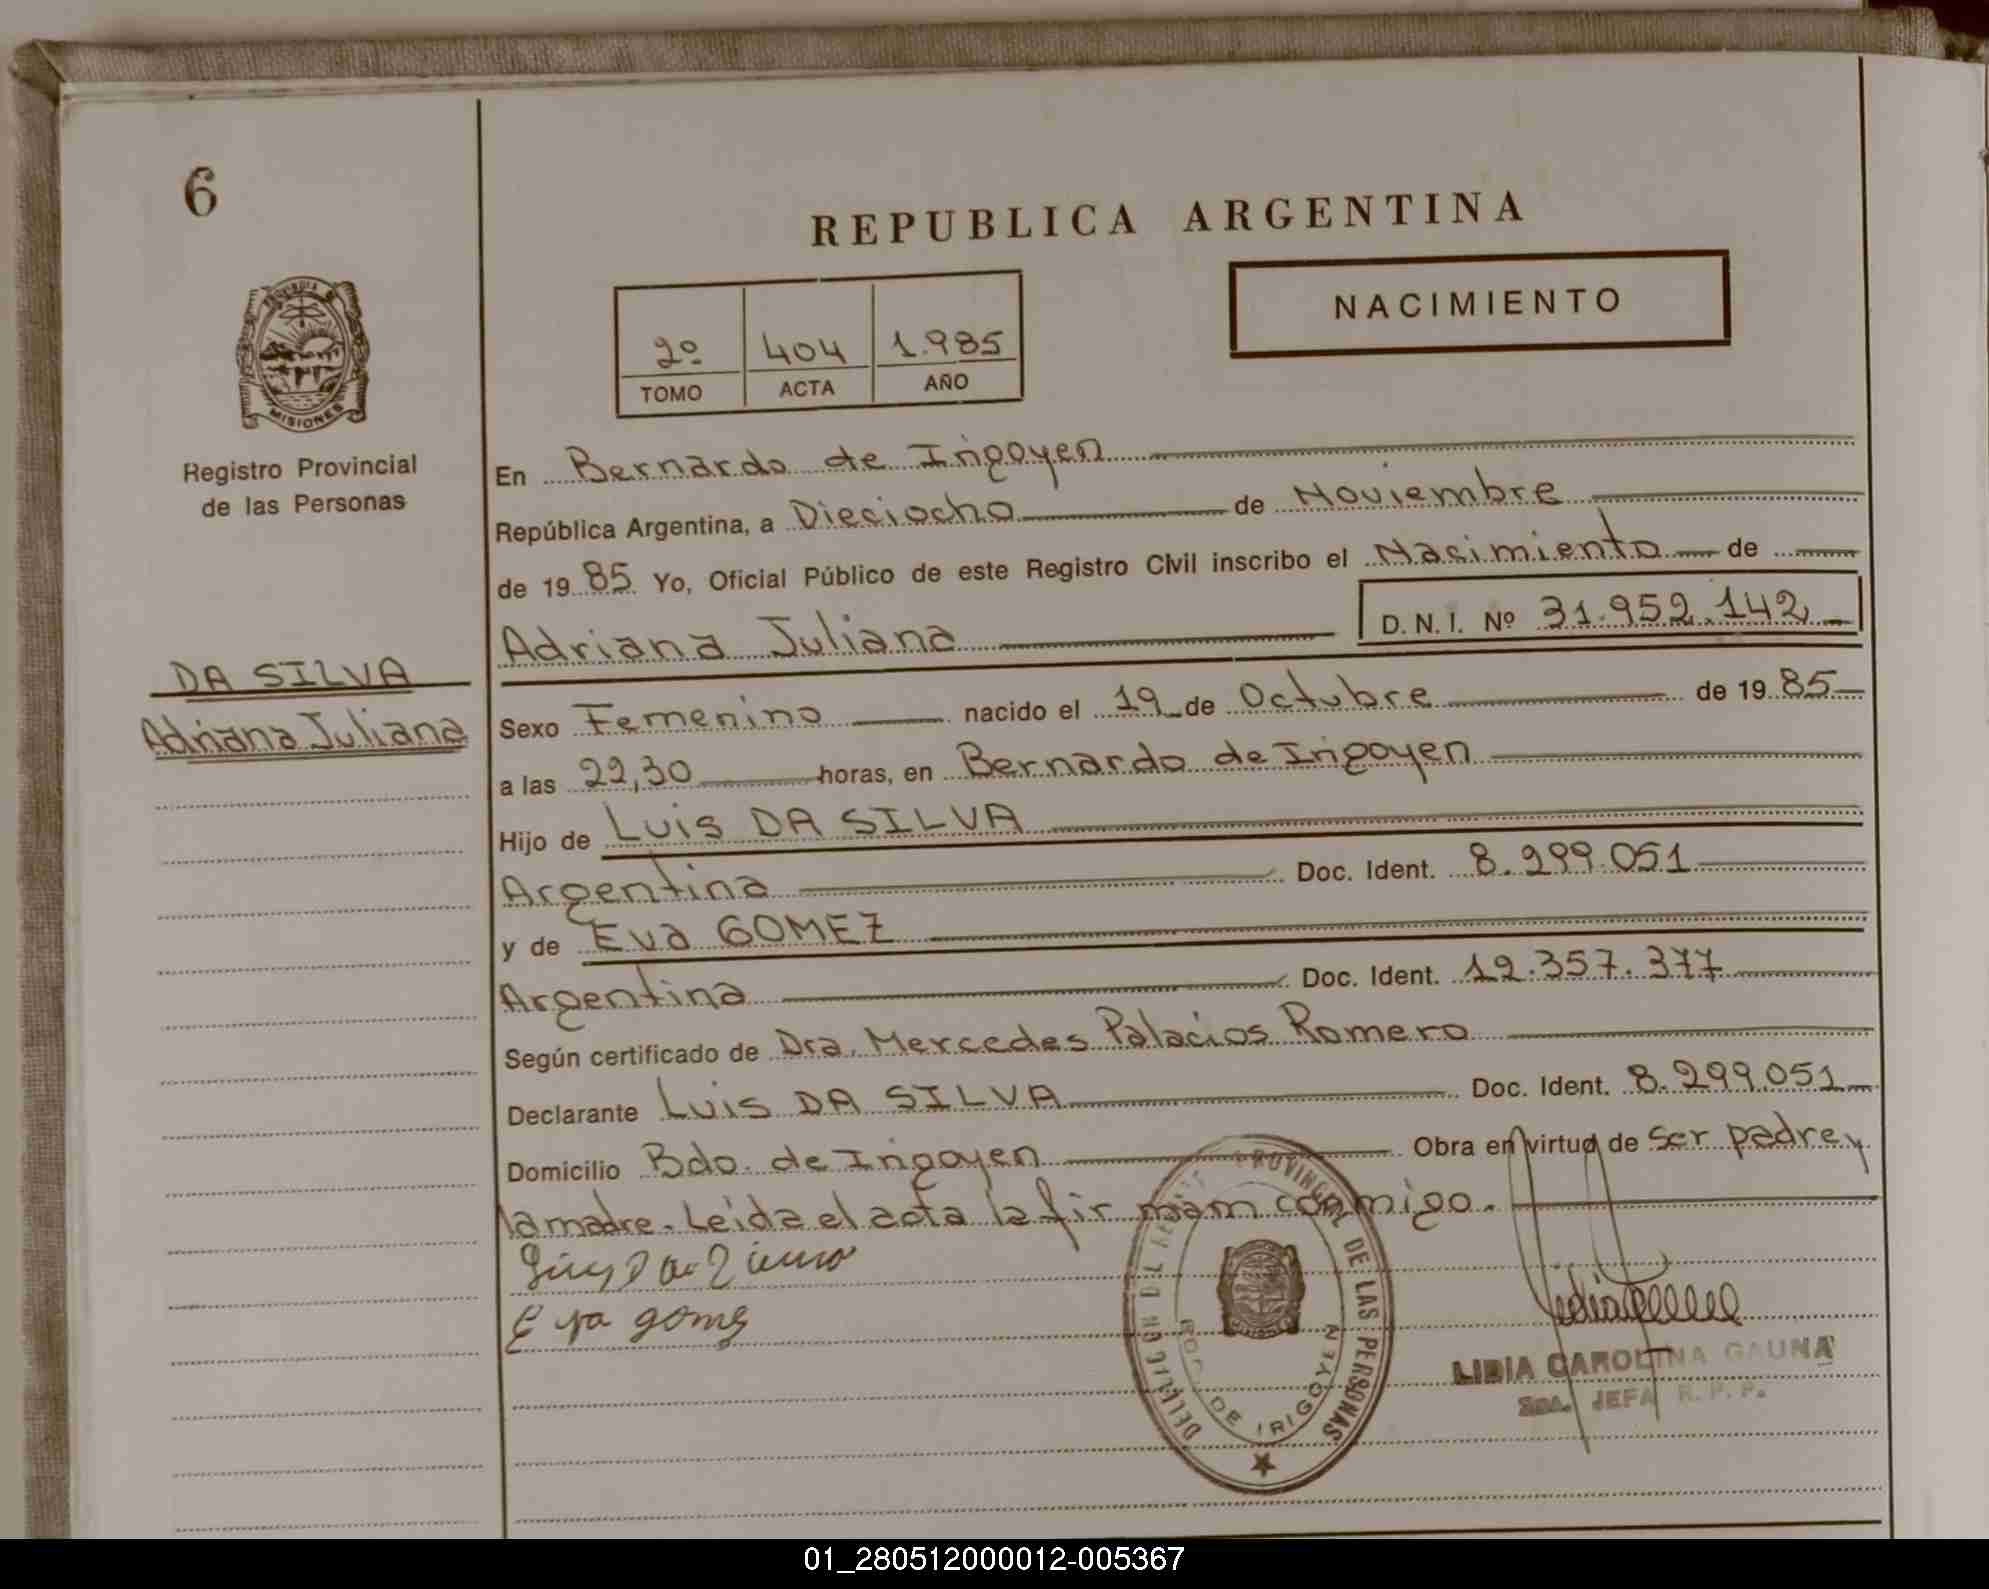 6
REPUBLICA ARGENTINA
NACIMIENTO
2º 404 1.985
TOMO ACTA AÑO
MISIONES
Registro Provincial
de las Personas
DA SILVA
Adriana Juliana
En Bernardo de Irigoyen
República Argentina, a Dieciocho de Noviembre
de 1985 Yo, Oficial Público de este Registro Civil inscribo el Nacimiento de
Adriana Juliana D.N.I. Nº 31.952.142
Sexo Femenino nacido el 19 de Octubre de 1985
a las 22,30 horas, en Bernardo de Irigoyen
Hijo de Luis DA SILVA
Argentina Doc. Ident. 8.299.051
y de Eva GOMEZ
Argentina Doc. Ident. 12.357.377
Según certificado de Dra. Mercedes Palacios Romero
Declarante Luis DA SILVA Doc. Ident. 8.299.051
Domicilio Bdo. de Irigoyen Obra en virtud de ser padre y
la madre. Leida el acta la fir mam conmigo.
Eva gomes
PROVINCIAL DE LAS PERSONAS
DE IRIGOYEN
LIDIA CAROLINA GAUNA
JEFA R.P.P.
01_280512000012-005367